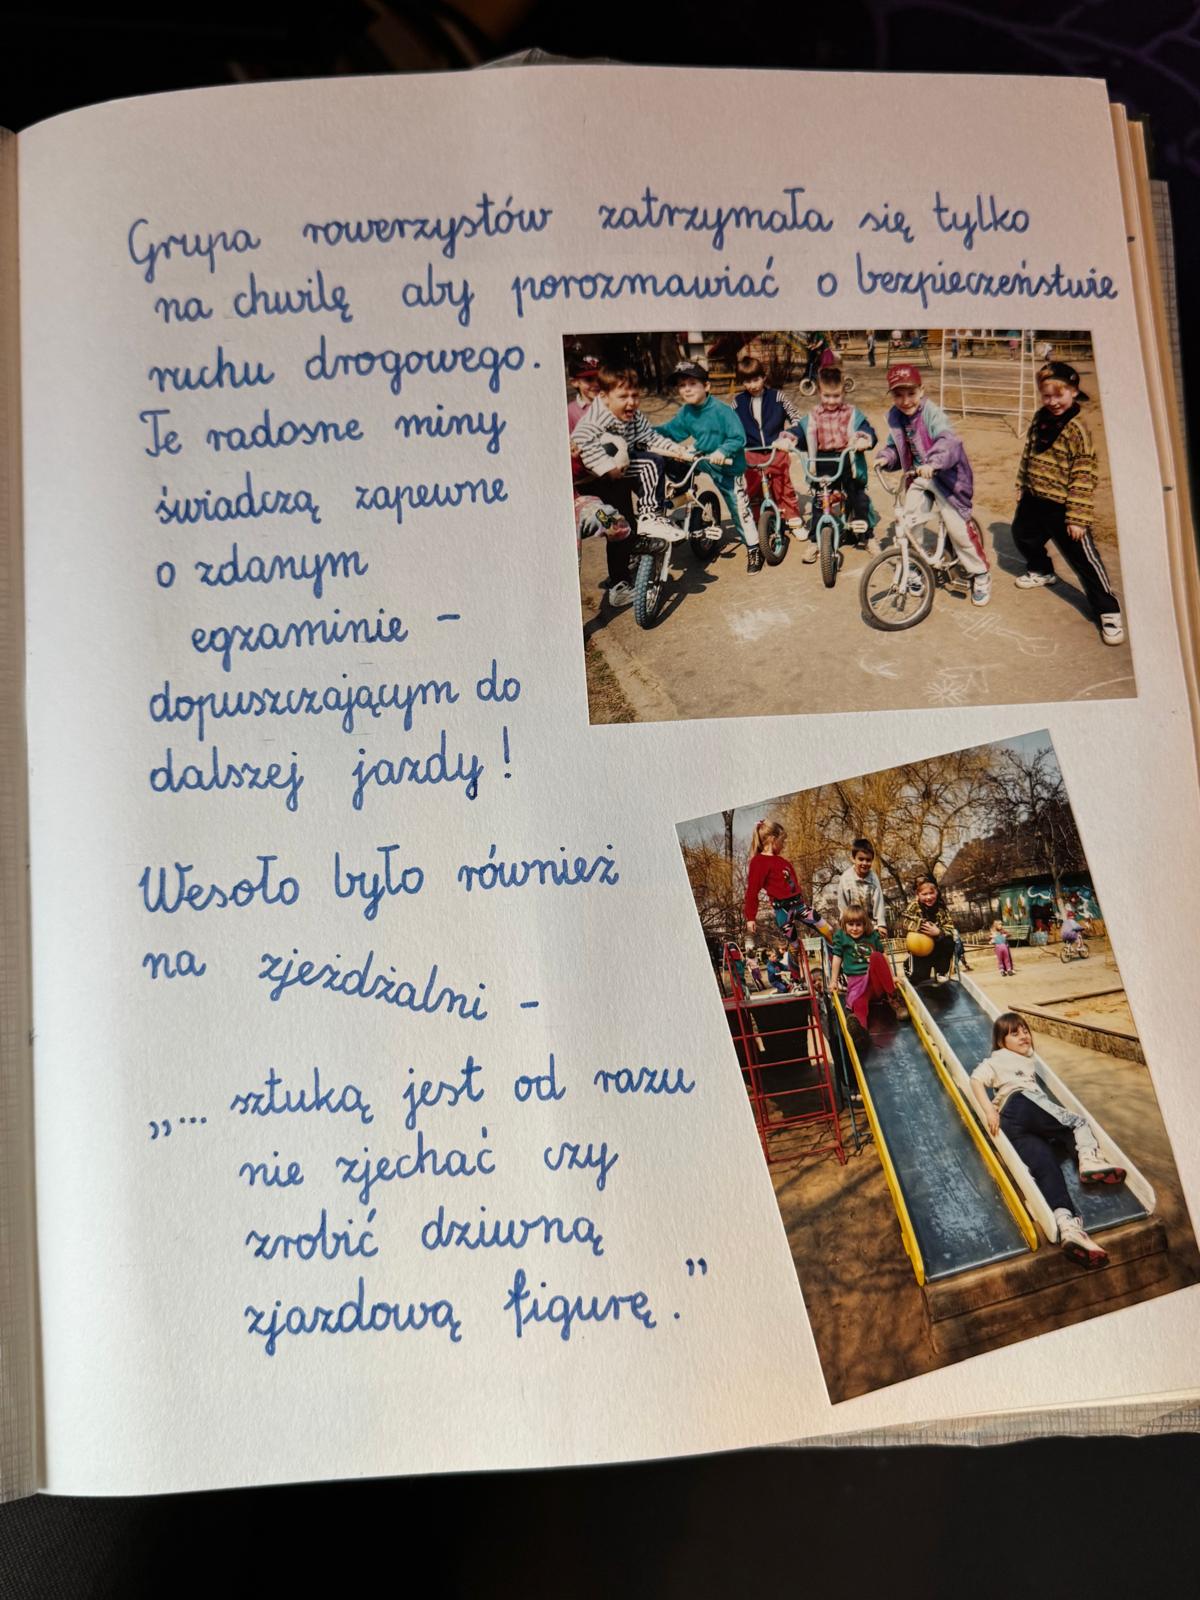 Grupa rowerzystów zatrzymała się tylko
na chwilę aby porozmawiać o bezpieczeństwie
ruchu drogowego.
Te radosne miny
świadczą zapewne
o zdanym
egzaminie -
dopuszczającym do
dalszej jazdy!
Wesoło było również
na zjeżdżalni -
„... sztuką jest od razu
nie zjechać czy
zrobić dziwną
zjazdową figurę.”